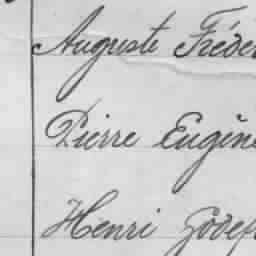 Auguste Fréder
Pierre Eugène
Henri Godef